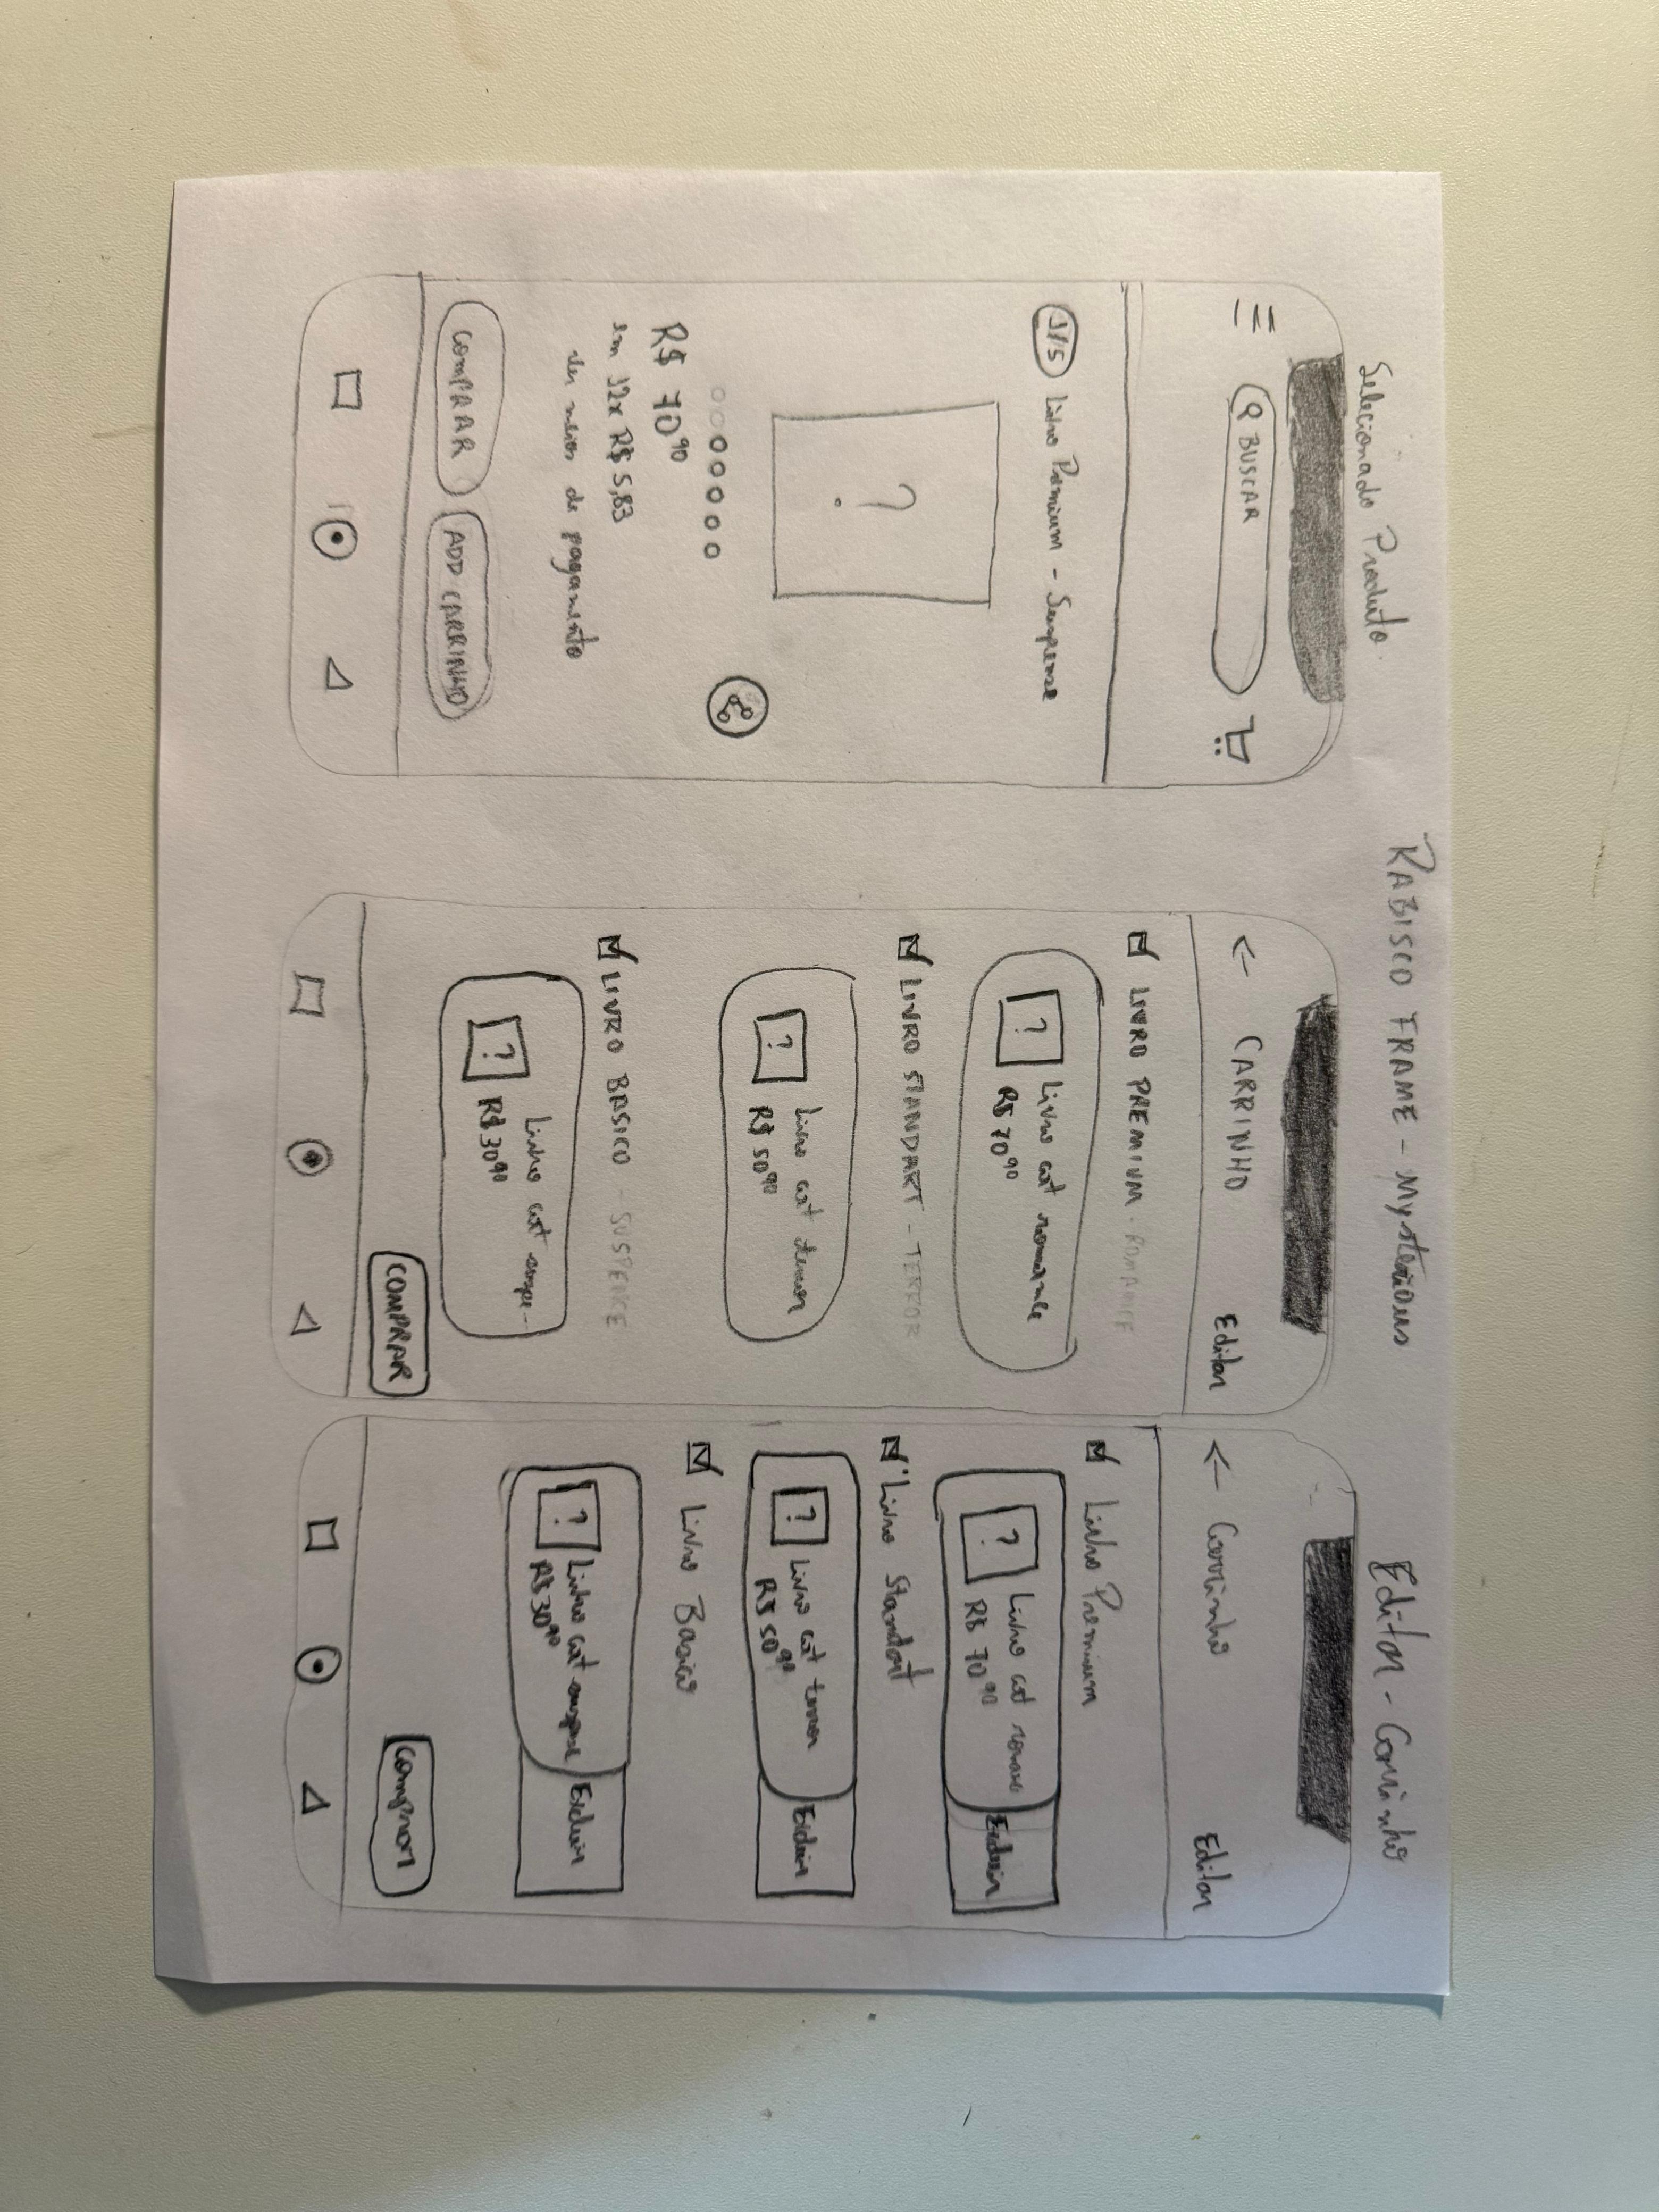 RABISCO FRAME - Mysterious
Selecionado Produto
BUSCAR
1/5 Livro Premium - Suspense
?
R$ 70⁹⁰
em 12x R$ 5,83
Ver meios de pagamento
COMPRAR
ADD CARRINHO
← CARRINHO
Editar
LIVRO PREMIUM - ROMANCE
?
Livro cat romance
R$ 70⁹⁰
LIVRO STANDART - TERROR
?
Livro cat terror
R$ 50⁹⁰
LIVRO BASICO - SUSPENCE
?
Livro cat suspe-
R$ 30⁹⁰
COMPRAR
Editar - Carrinho
← Carrinho
Editar
Livro Premium
?
Livro cat romance
R$ 70⁹⁰
Excluir
Livro Standart
?
Livro cat terror
R$ 50⁹⁰
Excluir
Livro Basico
?
Livro cat suspense
R$ 30⁹⁰
Excluir
Comprar